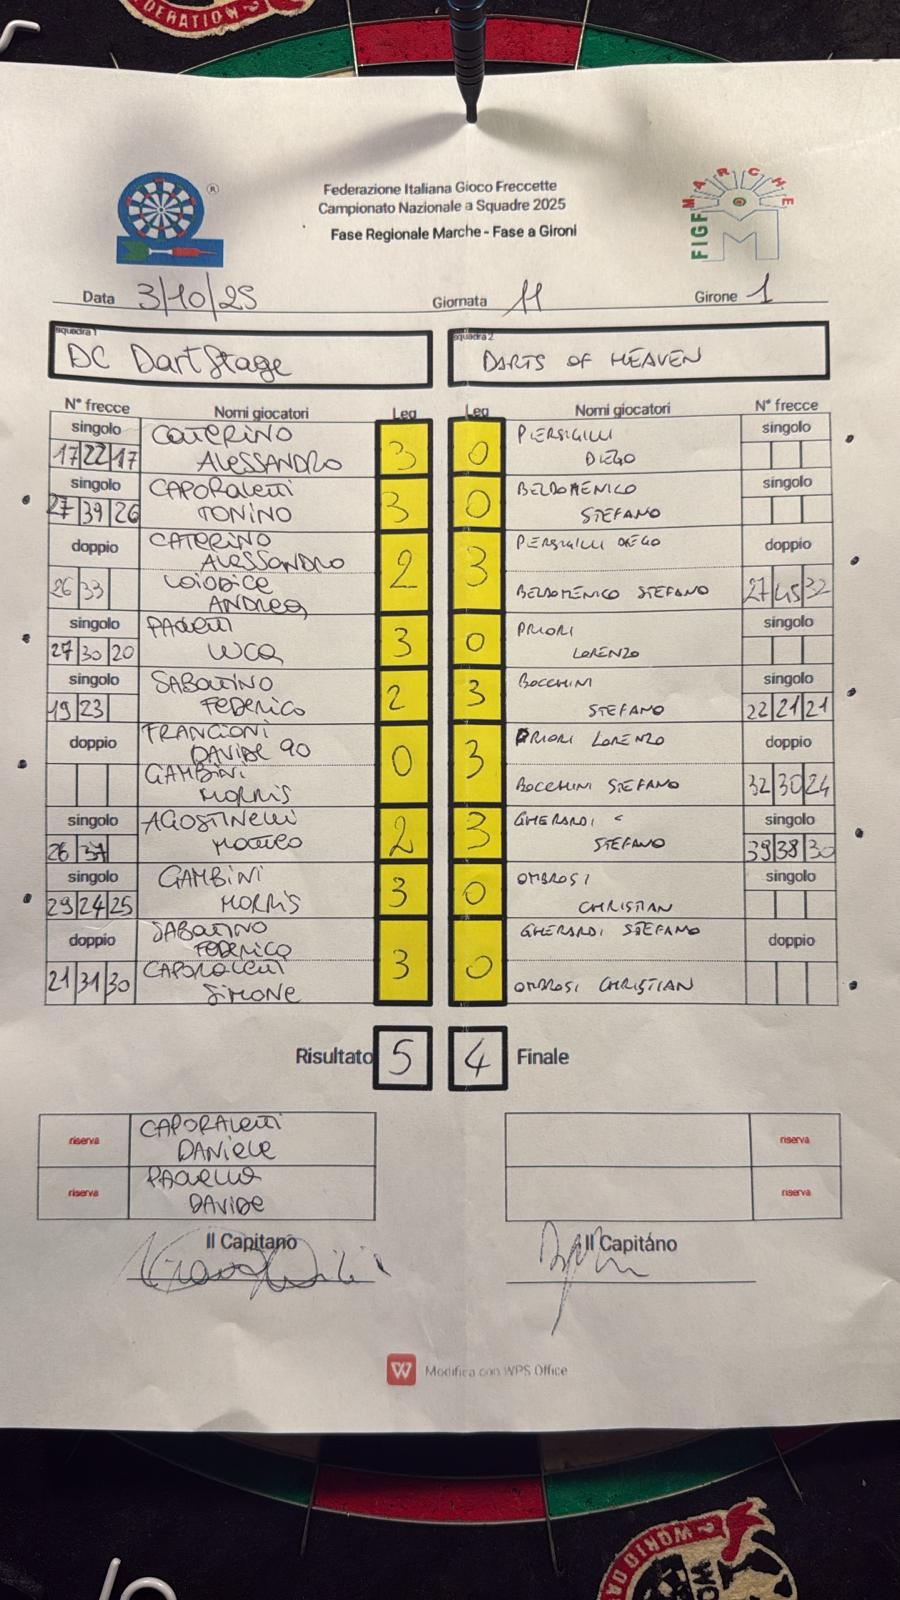 FEDERATION
®
Federazione Italiana Gioco Freccette
Campionato Nazionale a Squadre 2025
Fase Regionale Marche - Fase a Gironi
MARCHE
FIGF
M
Data 3/10/25 Giornata 11 Girone 1
squadra 1
DC DartStage
squadra 2
DARTS OF HEAVEN
N° frecce Nomi giocatori Leg Leg Nomi giocatori N° frecce
singolo CATERINO PIERSIGILLI singolo
17 22 17 ALESSANDRO 3 0 DIEGO
singolo CAPORALETTI BELDOMENICO singolo
27 39 26 TONINO 3 0 STEFANO
doppio CATERINO ALESSANDRO 2 3 PIERSIGILLI DIEGO doppio
26 33 LOIODICE ANDREA BELDOMENICO STEFANO 27 45 32
singolo PAOLETTI PRIORI singolo
27 30 20 LUCA 3 0 LORENZO
singolo SABATINO BOCCHINI singolo
19 23 FEDERICO 2 3 STEFANO 22 21 21
doppio FRANCIONI DAVIDE 90 0 3 PRIORI LORENZO doppio
GAMBINI MORRIS BOCCHINI STEFANO 32 30 24
singolo AGOSTINELLI GHERARDI singolo
26 37 MATTEO 2 3 STEFANO 39 38 30
singolo GAMBINI OMBROSI singolo
29 24 25 MORRIS 3 0 CHRISTIAN
doppio SABATINO FEDERICO 3 0 GHERARDI STEFANO doppio
21 31 30 CAPORALETTI SIMONE OMBROSI CHRISTIAN
Risultato 5 4 Finale
riserva CAPORALETTI DANIELE riserva
riserva DAVIDE riserva
Il Capitano Il Capitáno
W Modifica con WPS Office
WORLD DA